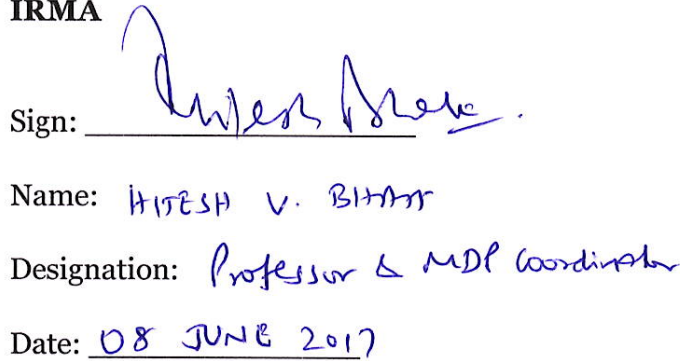 IRMA
Sign: Hitesh Bhatt.
Name: HITESH V. BHATT
Designation: Professor & MDP Coordinator
Date: 08 JUNE 2017